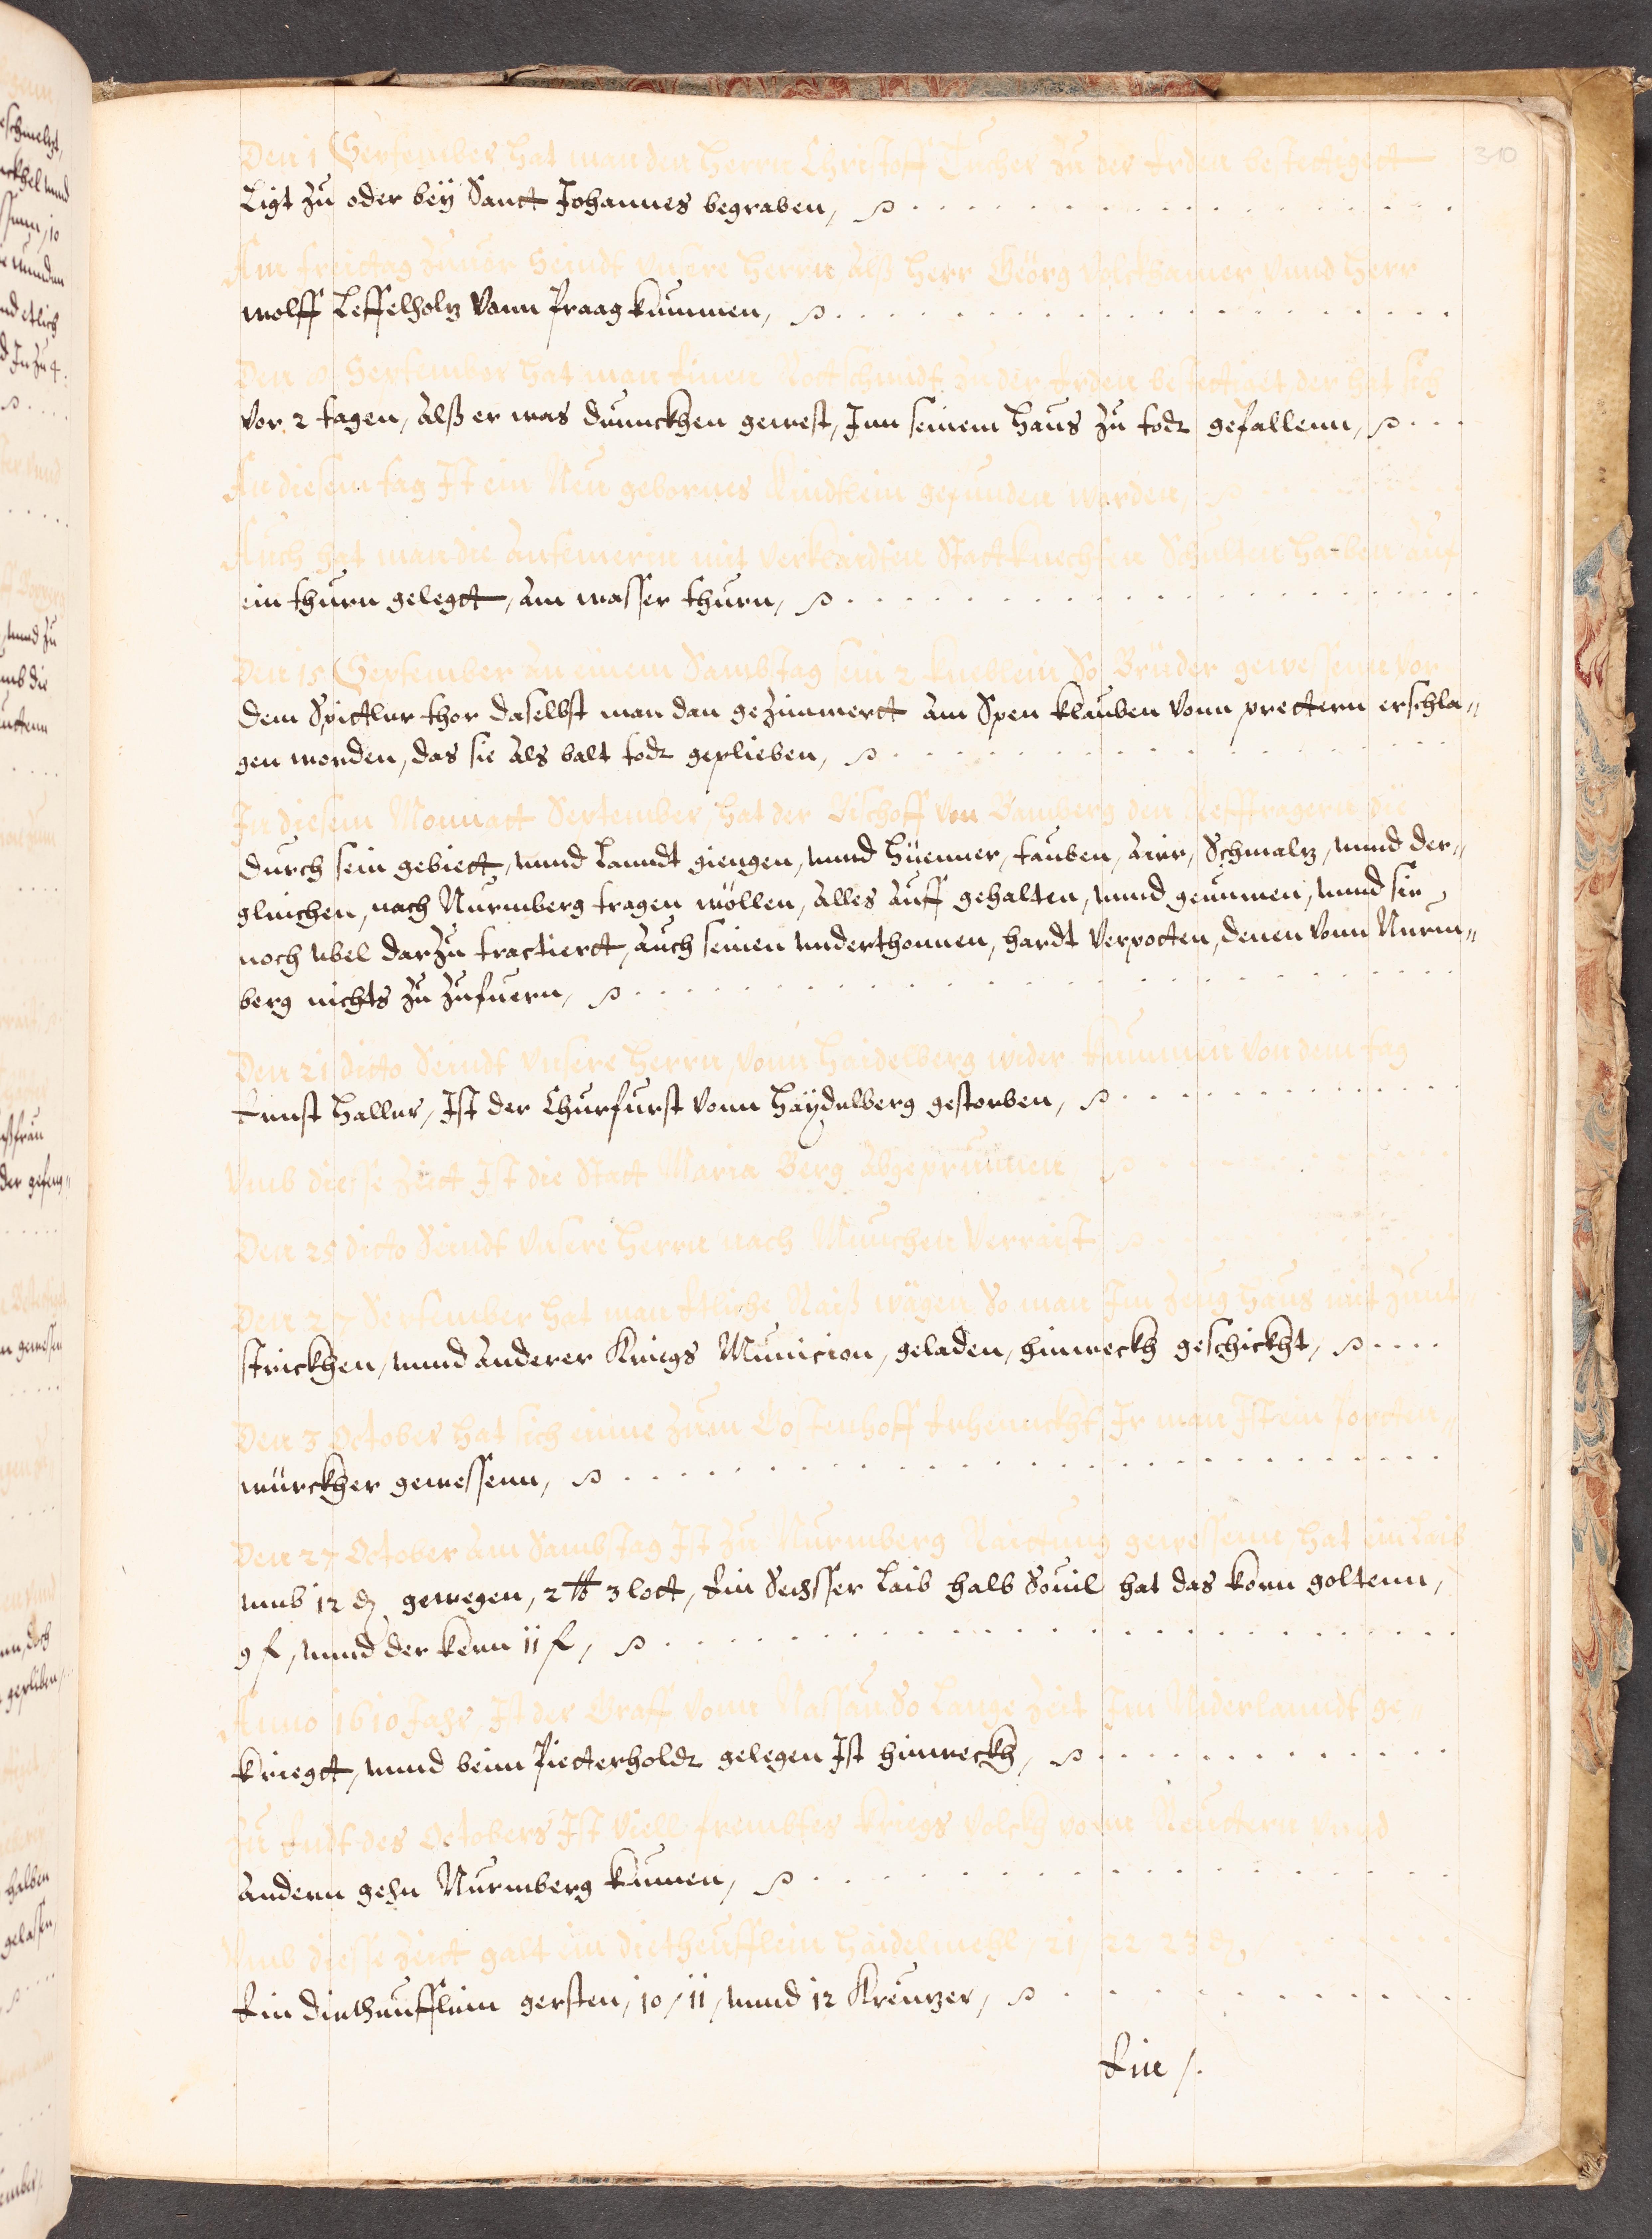 310
Den 1 September, hat man den Herrn Christoff Tucher zu der Erden bestettigett
Ligt zu oder beÿ Sanct Johannes begraben,
Am freittag zuuor Seindt vnsere Herrn Alß Herr Geörg Volckhamer vnnd Herr
wolff Leffelholz Vonn Praag kummen,
Den September hat man Einen Rottschmidt zu der Erden bestettiget der hat sich
Vor 2 tagen, Alß er was drunckhen gewest, Inn seinem Haus zu todt gefallenn,
An diesem tag Ist ein Neu gebornes Kindtlein gefunden worden,
Auch hat man die mit Stattknechten Schulten halben auf
ein thurn gelegtt, Am wasser thurn,
Den 15 September An einem SambsTag sein 2 kneblein So Brüder gewessenn Vor
dem Spittler thor daselbst man dan gezimmertt Am Spen klauben Vonn prettern erschla„
gen worden, das sie Als balt todt geplieben,
In diesem Monnatt September, hat der Bischoff Von Bamberg den Refftragern die
durch sein gebiett, vnnd Lanndt giengen, vnnd Hüenner, tauben, Aier, Schmalz, vnnd der„
gleichen, nach Nurmberg tragen wöllen, Alles Auff gehalten, vnnd genummen, vnnd sie
noch vbel darzu tractiertt, Auch seinen vnderthonnen, hardt Verpotten, denen Vonn Nurm„
berg nichts zu zufuern,
Den 21 dicto Seindt Vnsere Herrn Vonn Haidelberg wider kummen Von dem tag
Ernst Haller, Ist der Churfurst Vonn Haÿdelberg gestorben,
Vmb diesse Zeitt Ist die Statt Maria Berg Abgeprunnen
Den 25 dicto Seindt Vnsere Herrn nach München Verraist
Den 27 September hat man Etliche Raiß wägen So man Im Zeug Haus mit Zünt
strickhen, vnnd Anderer Kriegs Municion, geladen, hinweckh geschickht,
Den 3 October hat sich eine zum Gostenhoff Erhennckht Ir man Ist ein portten„
würckher gewessenn,
Den 27 October Am SambsTag Ist zu Nurmberg Raittung gewessenn, hat ein Laib
vmb 12 ₰ gewegen, 2 ℔ 3 lott, Ein Sechsser Laib halb Souil hat das korn goltenn,
9 f, vnnd der kern 11 f,
Anno 1610 Jahr Ist der Graff Vonn Nassau So Lange Zeit Im Niderlanndt ge„
kriegtt, vnnd beim Pietterholdt gelegen Ist hinweckh,
Zu Endt des Octobers Ist Viell frembtes kriegs Volckh Vonn Reuttern vnnd
Andern gehn Nurmberg kumen,
Vmb diesse Zeitt galt ein dietheufflein Haidelmehl, 21, 22, 23 ₰,
Ein dietheufflein gersten, 10, 11, vnnd 12 Kreuzer,
Ein